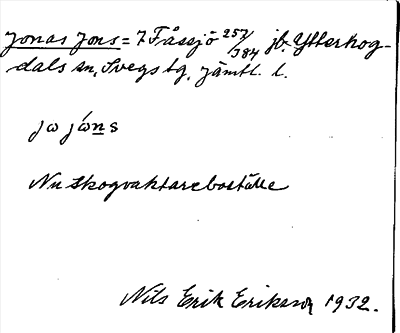 Jonas Jons = 7 Fåssjö 257/384 jb. Ytterhog-
dals sn, Svegs tg, Jämtl. l.
jo jóns
Nu skogvaktareboställe
Nils Erik Eriksson 1932.